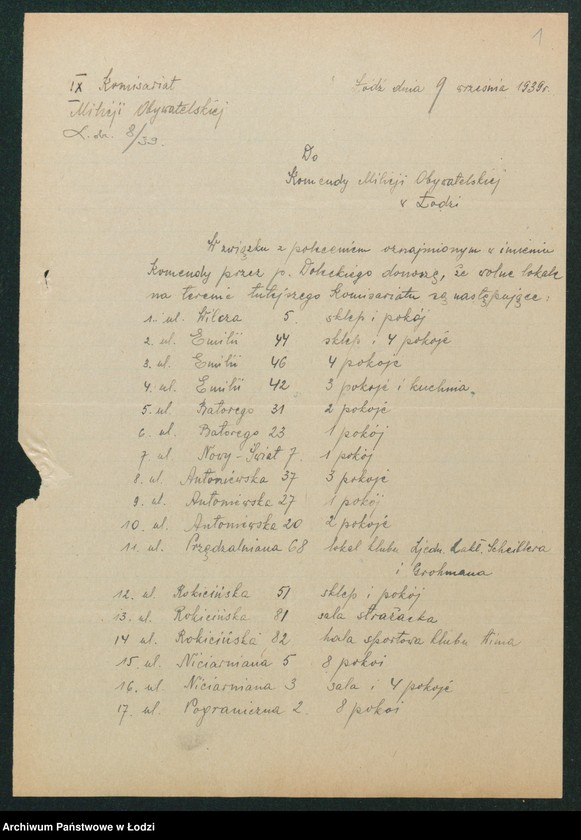 1
IX Komisariat
Milicji Obywatelskiej
L. dz. 8/39.
Łódź dnia 9 września 1939 r.
Do
Komendy Milicji Obywatelskiej
w Łodzi
W związku z poleceniem oznajmionym w imieniu
Komendy przez p. Doleckiego donoszę, że wolne lokale
na terenie tutejszego Komisariatu są następujące:
1. ul. Wilcza 5. sklep i pokój
2. ul. Emilii 44 sklep i 4 pokoje
3. ul. Emilii 46 4 pokoje
4. ul. Emilii 42 3 pokoje i kuchnia
5. ul. Batorego 31 2 pokoje
6. ul. Batorego 23 1 pokój
7 ul. Nowy-Świat 7. 1 pokój
8. ul. Antoniewska 37 3 pokoje
9. ul. Antoniewska 27 1 pokój
10. ul. Antoniewska 20 2 pokoje
11. ul. Przędzalniana 68 lokal klubu Zjedn. Zakł. Scheiblera
i Grohmana
12. ul. Rokicińska 51 sklep i pokój
13. ul. Rokicińska 81 sala Strażacka
14 ul. Rokicińska 82 hala sportowa klubu Wima
15. ul. Niciarniana 5 8 pokoi
16. ul. Niciarniana 3 sala i 4 pokoje
17. ul. Pograniczna 2. 8 pokoi
Archiwum Państwowe w Łodzi